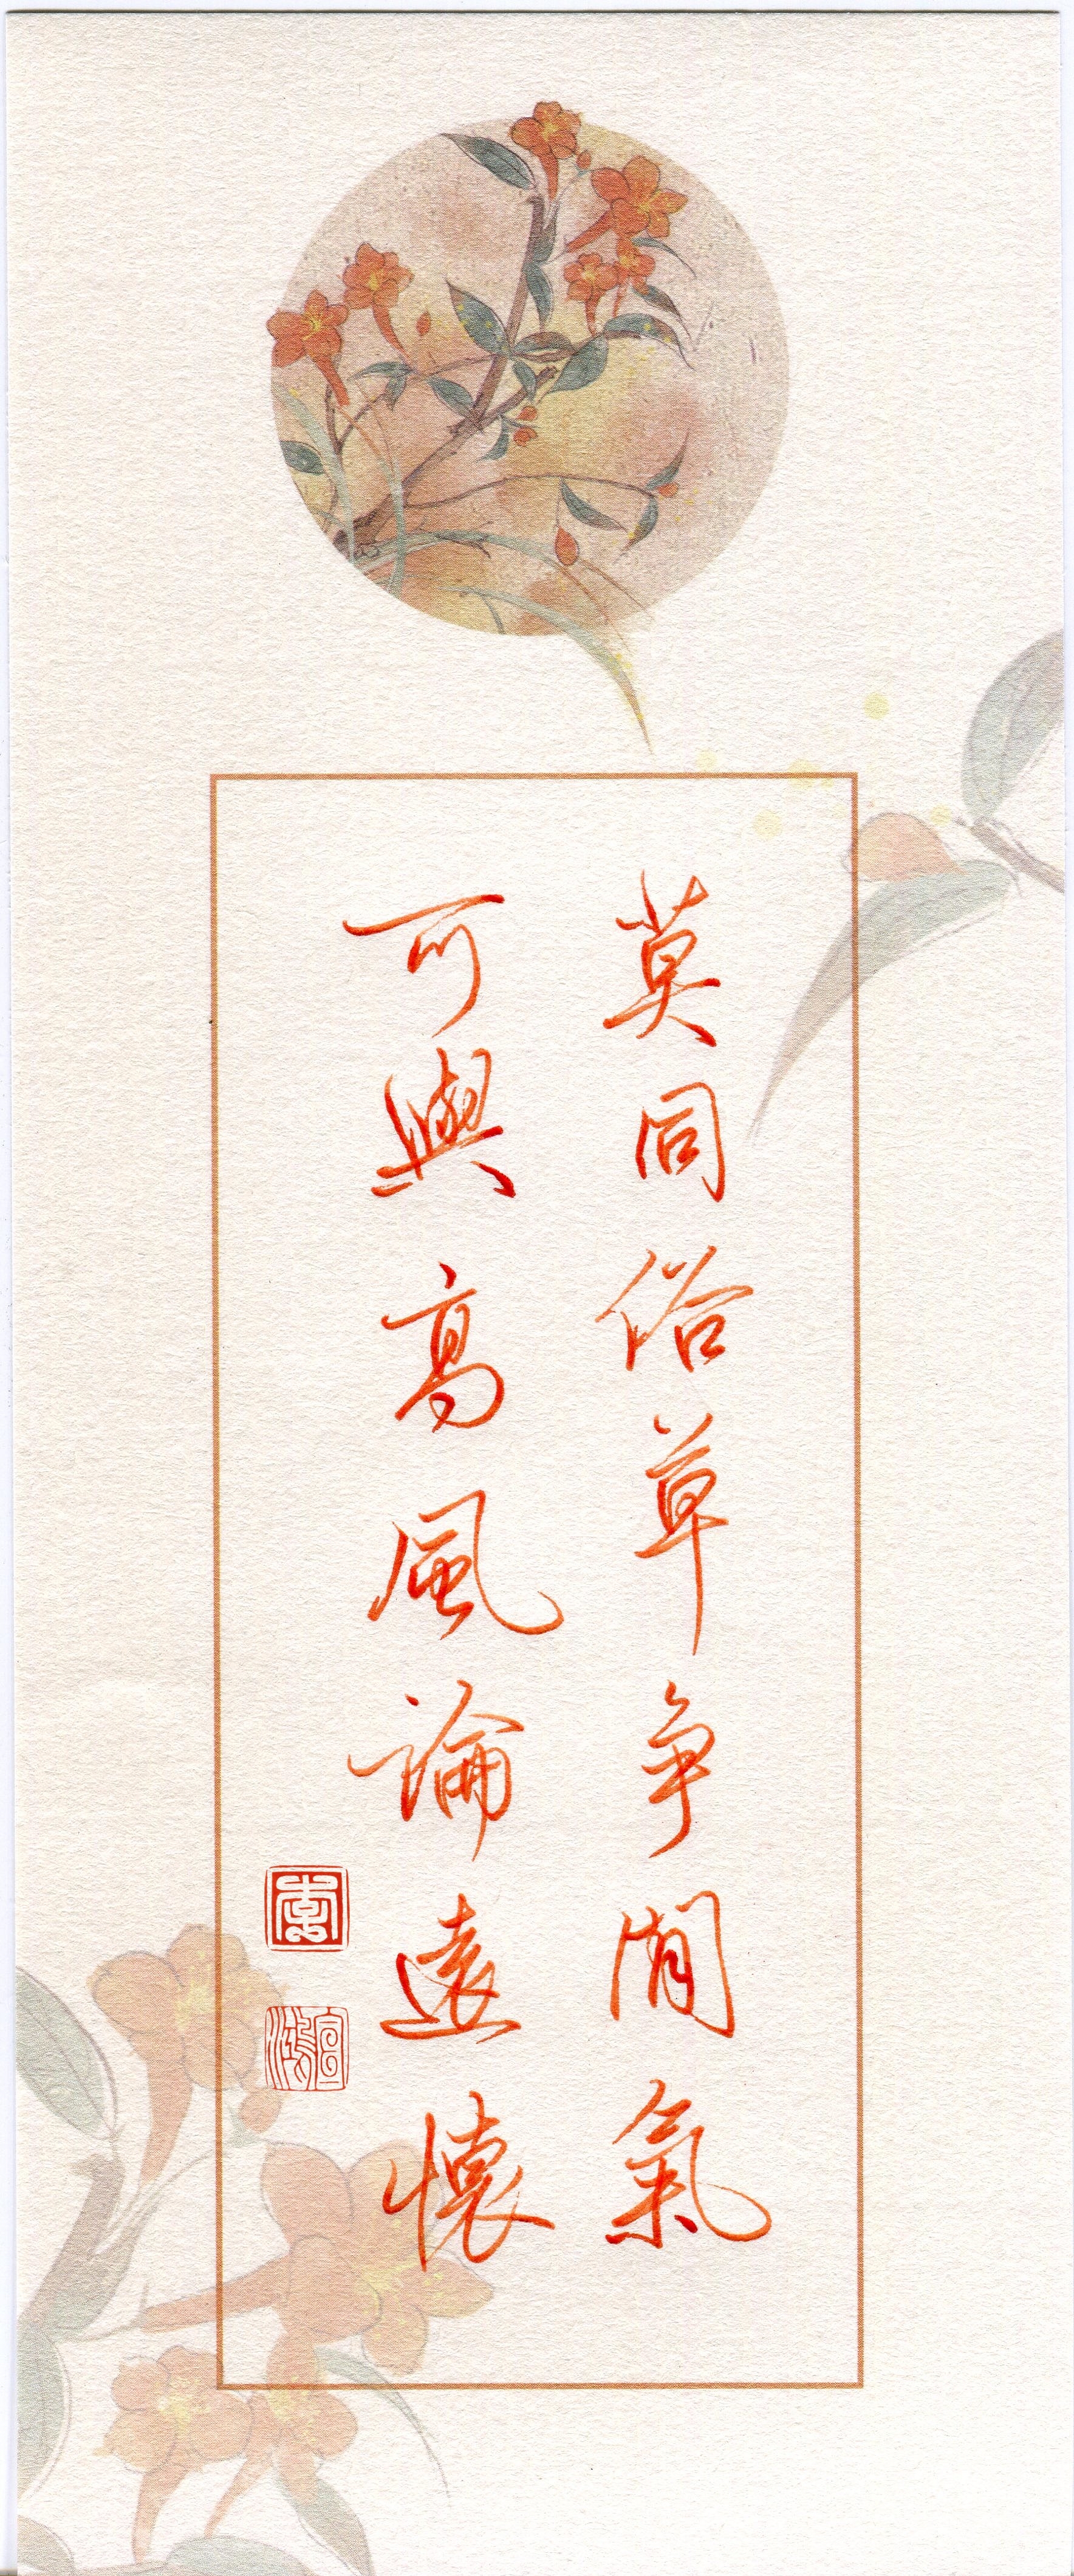 莫同俗草争閒氣
可與高風論遠懷
李